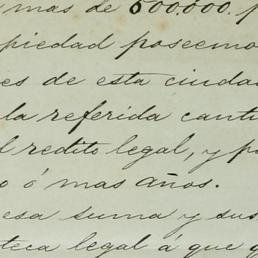 mas de 500.000.
piedad poseemo
es de esta ciudad
la referida canti
l redito legal, y p
o ó mas años.
esa suma y sus
teca legal á que q